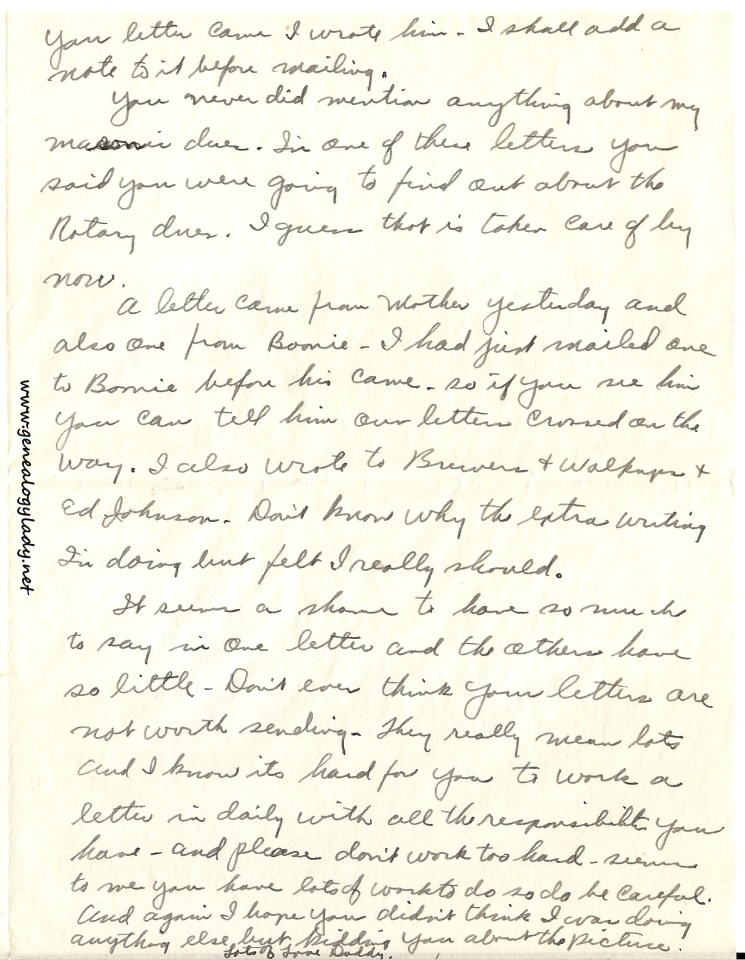 your letter came I wrote him - I shall add a
note to it before mailing.
You never did mention anything about my
masonic dues. In one of these letters you
said you were going to find out about the
Rotary dues. I guess that is taken care of by
now.
A letter came from Mother yesterday and
also one from Boonie - I had just mailed one
to Boonie before his came - so if you see him
you can tell him our letters crossed on the
way. I also wrote to Brewers + Walkups +
Ed Johnson. Don't know why the extra writing
I'm doing but felt I really should.
It seems a shame to have so much
to say in one letter and the others have
so little - Don't ever think your letters are
not worth sending - They really mean lots
and I know its hard for you to work a
letter in daily with all the responsibility you
have - and please don't work too hard - seems
to me you have lots of work to do so do be careful.
And again I hope you didn't think I was doing
anything else but kidding you about the picture.
Lots of Love Daddy.
www.genealogylady.net